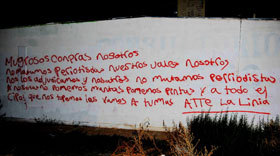 Mugrosos compras nosotros
no matamos periodistas nuestros vales nosotros
no los adjudicamos y nosotros no matamos periodistas
nosotros no ponemos mantas ponemos pintas y a todo el
que nos tipemos las vamos A tumar ATTE La Linia